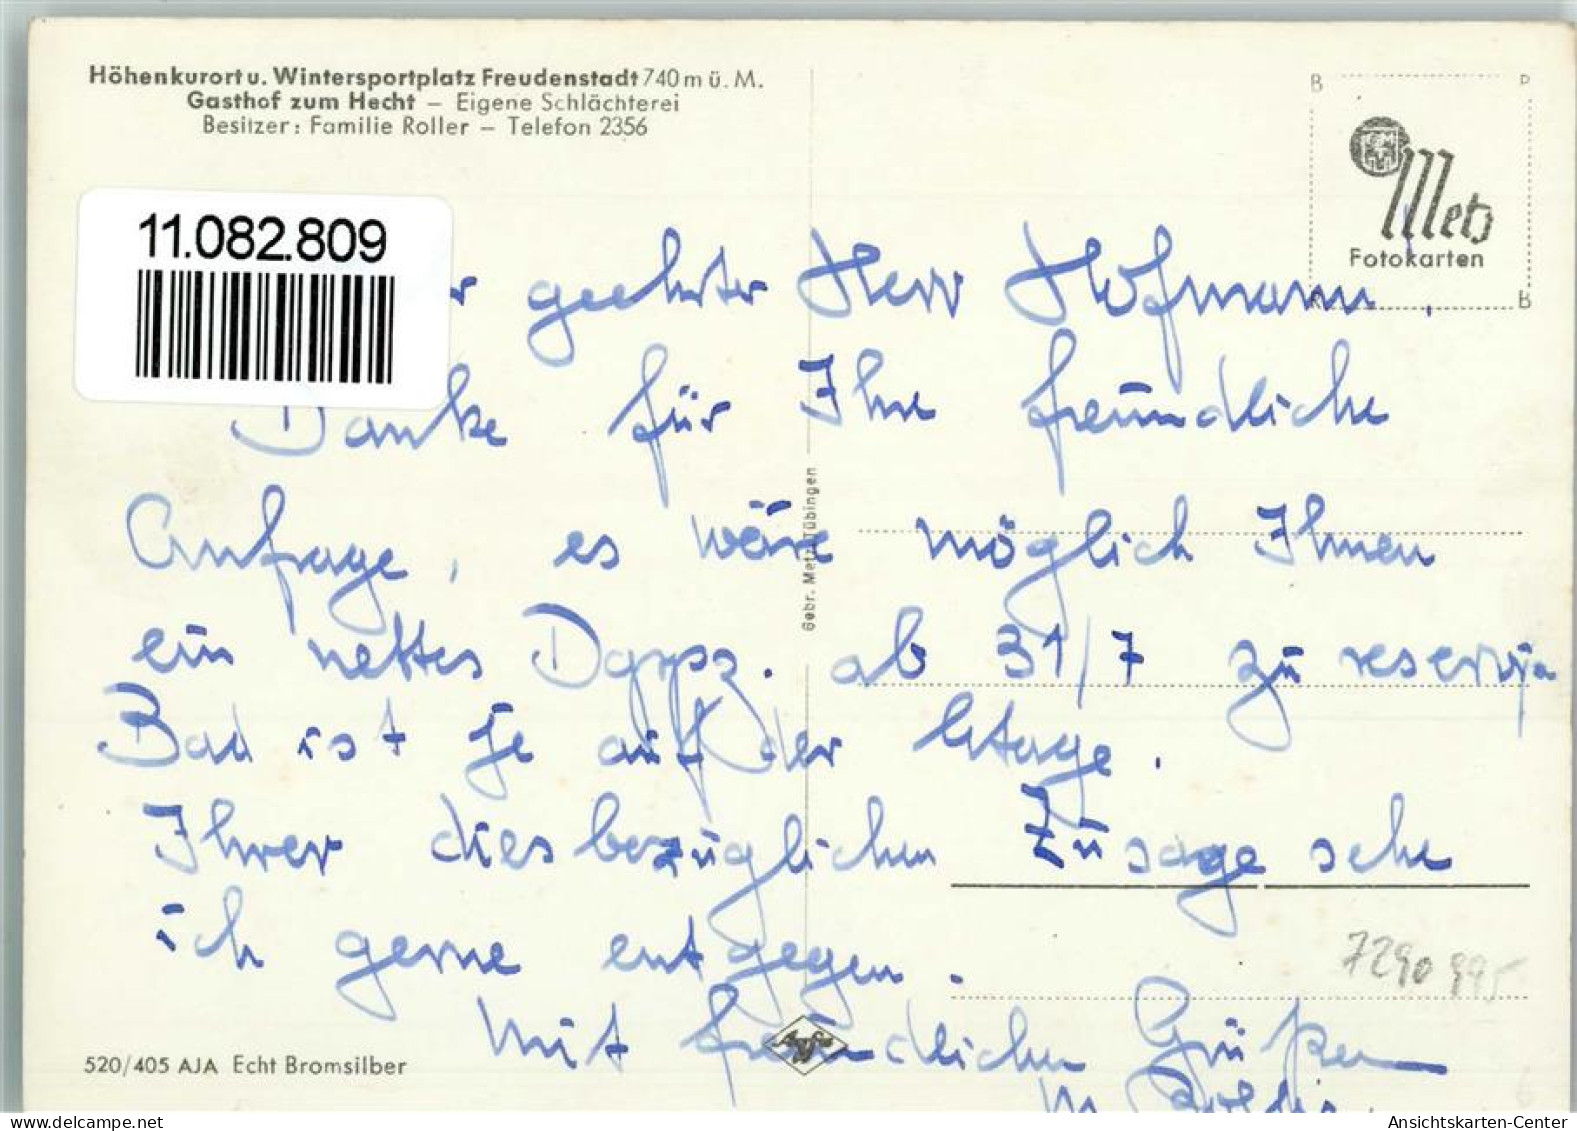 Höhenkurort u. Wintersportplatz Freudenstadt 740 m ü. M.
Gasthof zum Hecht – Eigene Schlächterei
Besitzer: Familie Roller – Telefon 2356
B P
Metz
Fotokarten
R B
11.082.809
r geehrter Herr Hofmann.
Danke für Ihre freundliche
Anfrage, es wäre möglich Ihnen
ein nettes Doppz. ab 31/7 zu
Bad ist je auf der Etage.
Ihrer diesbezüglichen Zusage sehe
ich gerne entgegen.
Mit freundlichen Grüßen
Gebr. Metz, Tübingen
7290995
Agfa
520/405 AJA Echt Bromsilber
Ansichtskarten-Center